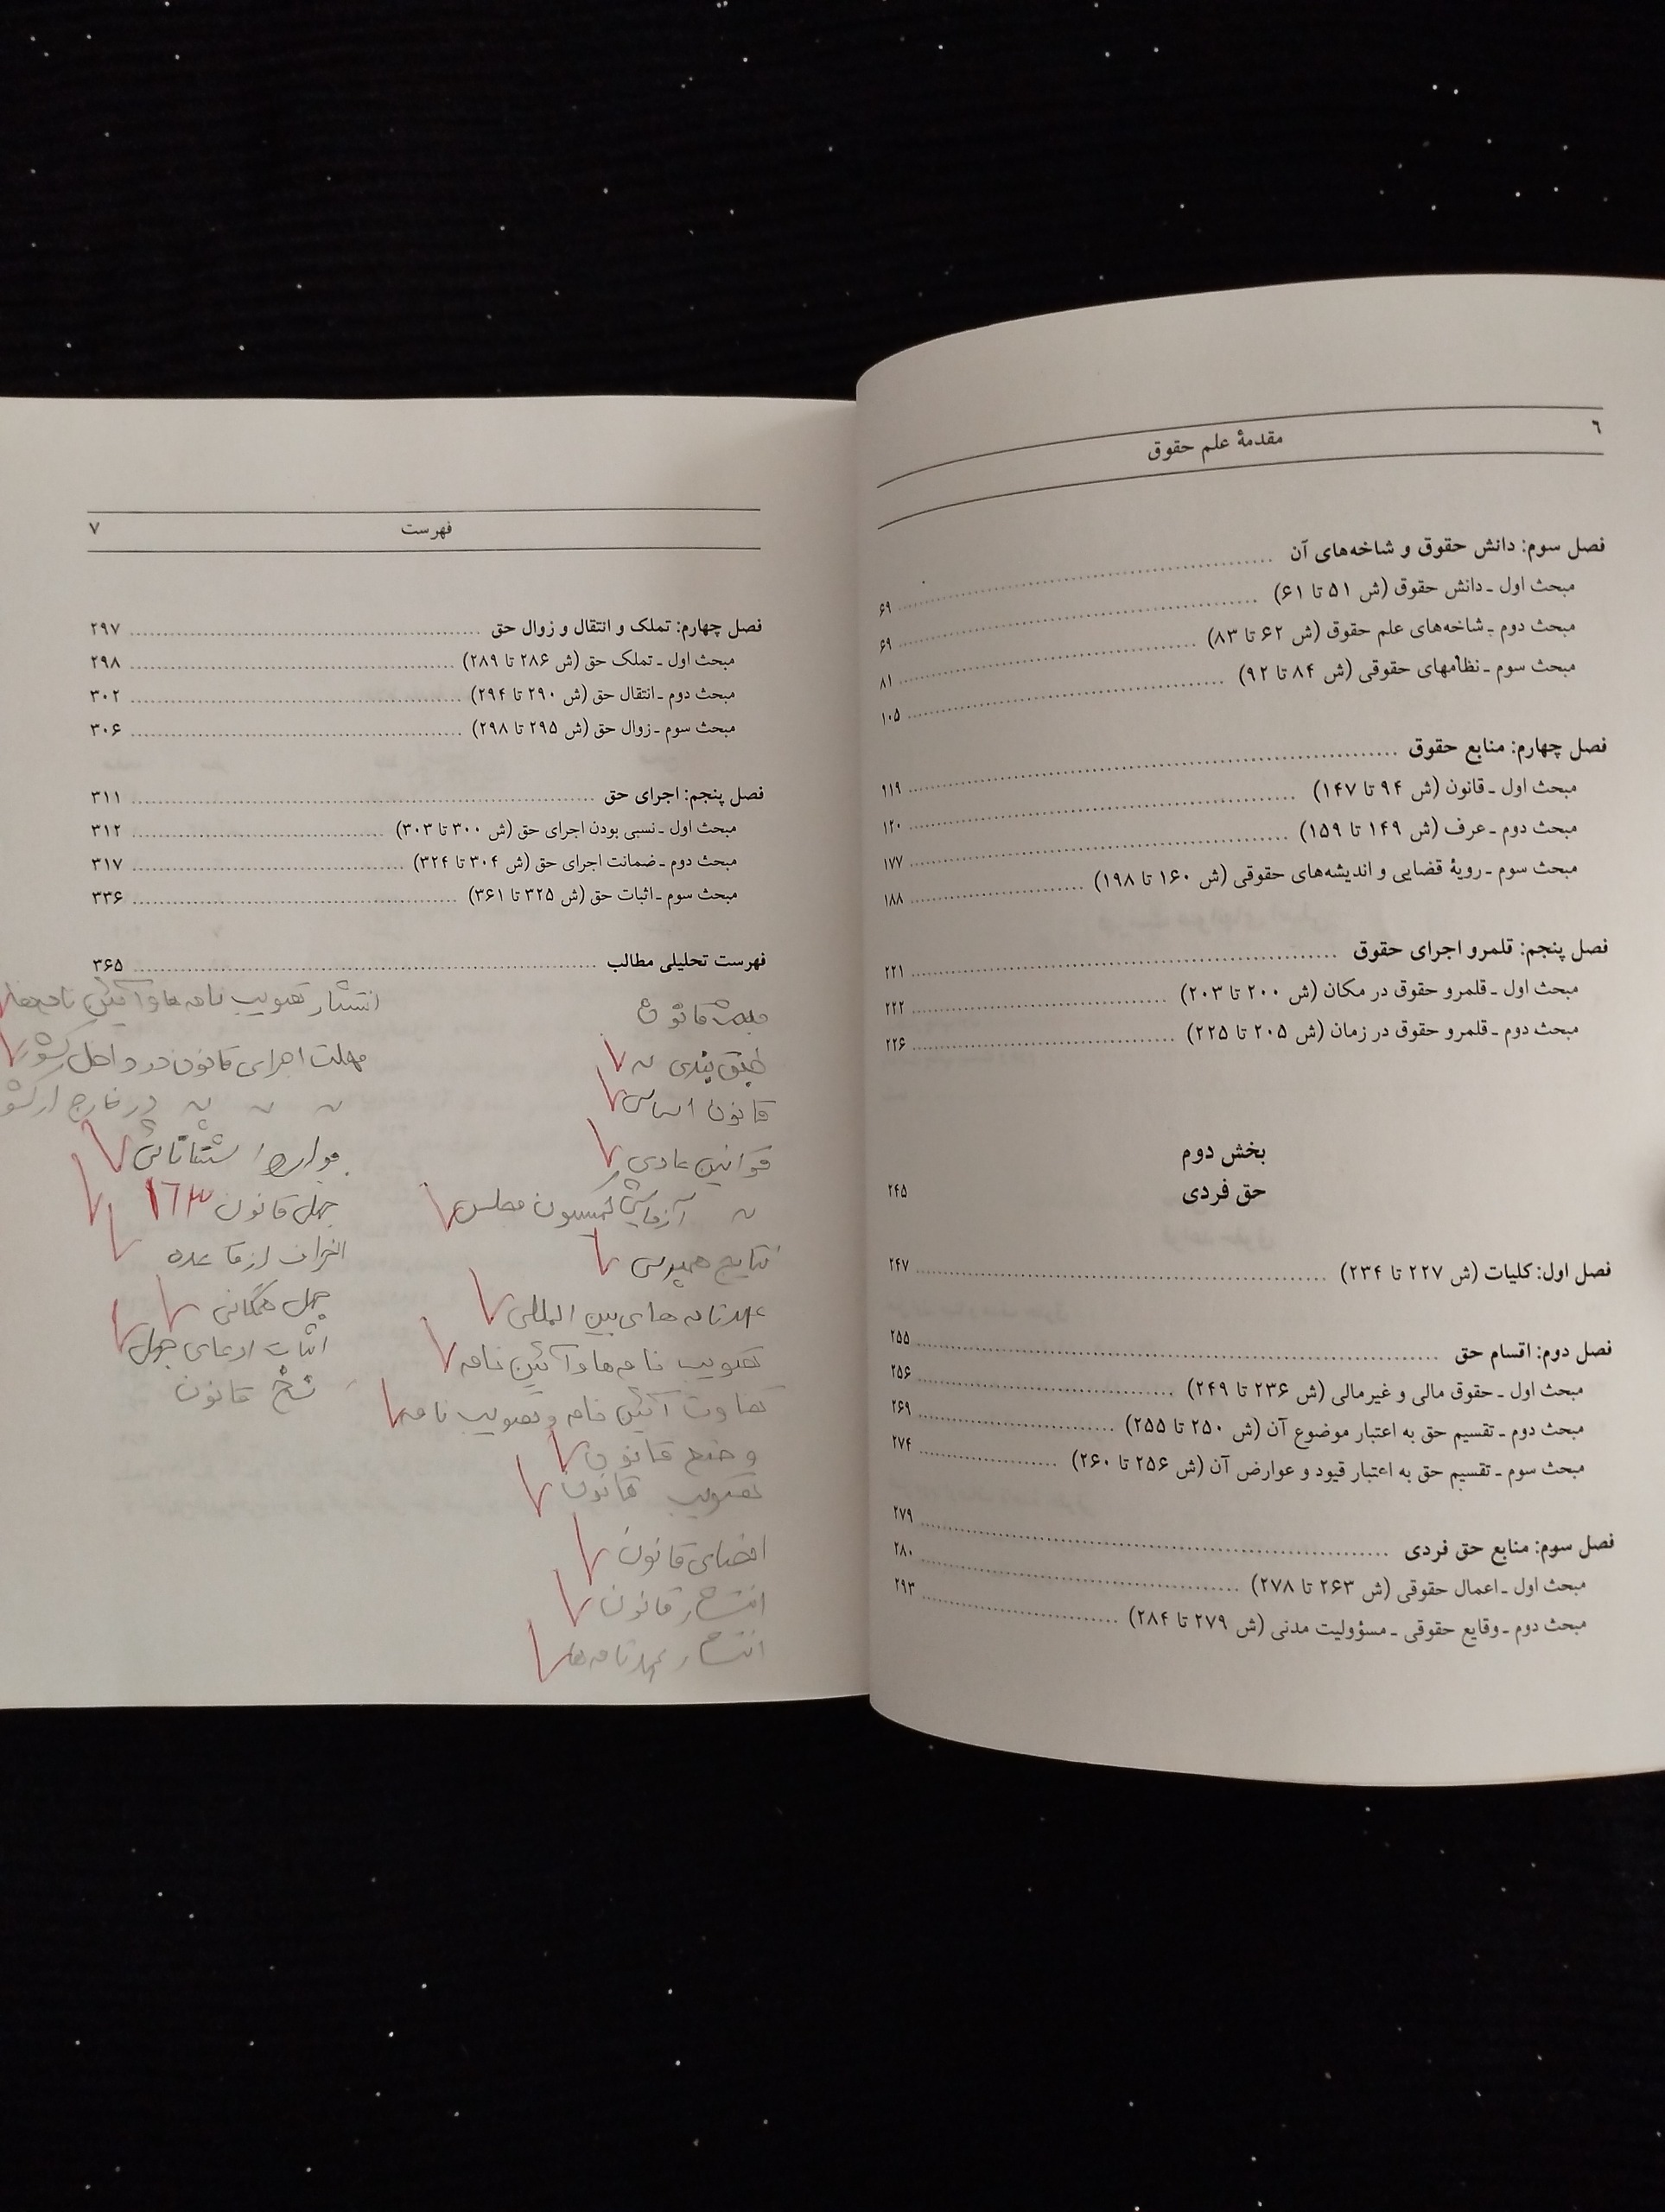 ٦
مقدمهٔ علم حقوق
فصل سوم: دانش حقوق و شاخه‌های آن ........ ۶۹
مبحث اول ـ دانش حقوق (ش ۵۱ تا ۶۱) ........ ۶۹
مبحث دوم ـ شاخه‌های علم حقوق (ش ۶۲ تا ۸۳) ........ ۸۱
مبحث سوم ـ نظامهای حقوقی (ش ۸۴ تا ۹۲) ........ ۱۰۵
فصل چهارم: منابع حقوق ........ ۱۱۹
مبحث اول ـ قانون (ش ۹۴ تا ۱۴۷) ........ ۱۲۰
مبحث دوم ـ عرف (ش ۱۴۹ تا ۱۵۹) ........ ۱۷۷
مبحث سوم ـ رویهٔ قضایی و اندیشه‌های حقوقی (ش ۱۶۰ تا ۱۹۸) ........ ۱۸۸
فصل پنجم: قلمرو اجرای حقوق ........ ۲۲۱
مبحث اول ـ قلمرو حقوق در مکان (ش ۲۰۰ تا ۲۰۳) ........ ۲۲۲
مبحث دوم ـ قلمرو حقوق در زمان (ش ۲۰۵ تا ۲۲۵) ........ ۲۲۶
بخش دوم
حق فردی ۲۴۵
فصل اول: کلیات (ش ۲۲۷ تا ۲۳۴) ........ ۲۴۷
فصل دوم: اقسام حق ........ ۲۵۵
مبحث اول ـ حقوق مالی و غیرمالی (ش ۲۳۶ تا ۲۴۹) ........ ۲۵۶
مبحث دوم ـ تقسیم حق به اعتبار موضوع آن (ش ۲۵۰ تا ۲۵۵) ........ ۲۶۹
مبحث سوم ـ تقسیم حق به اعتبار قیود و عوارض آن (ش ۲۵۶ تا ۲۶۰) ........ ۲۷۴
فصل سوم: منابع حق فردی ........ ۲۷۹
مبحث اول ـ اعمال حقوقی (ش ۲۶۳ تا ۲۷۸) ........ ۲۸۰
مبحث دوم ـ وقایع حقوقی ـ مسؤولیت مدنی (ش ۲۷۹ تا ۲۸۴) ........ ۲۹۳
فهرست
۷
فصل چهارم: تملک و انتقال و زوال حق ........ ۲۹۷
مبحث اول ـ تملک حق (ش ۲۸۶ تا ۲۸۹) ........ ۲۹۸
مبحث دوم ـ انتقال حق (ش ۲۹۰ تا ۲۹۴) ........ ۳۰۲
مبحث سوم ـ زوال حق (ش ۲۹۵ تا ۲۹۸) ........ ۳۰۶
فصل پنجم: اجرای حق ........ ۳۱۱
مبحث اول ـ نسبی بودن اجرای حق (ش ۳۰۰ تا ۳۰۳) ........ ۳۱۲
مبحث دوم ـ ضمانت اجرای حق (ش ۳۰۴ تا ۳۲۴) ........ ۳۱۷
مبحث سوم ـ اثبات حق (ش ۳۲۵ تا ۳۶۱) ........ ۳۳۶
فهرست تحلیلی مطالب ........ ۳۶۵
مبحث قانون
طبق بندی
قانون اساسی
قوانین عادی
آزمایشی کمیسیون مجلس
نتایج همه‌پرسی
عهدنامه های بین المللی
تصویب نامه‌ها و آئین نامه
تفاوت آئین نامه و تصویب نامه
وضع قانون
تصویب قانون
امضای قانون
انتشار قانون
انتشار عهدنامه‌ها
انتشار تصویب نامه ها و آئین نامه‌ها
مهلت اجرای قانون در داخل کشور
در خارج از
موارد استثنائی
جهل قانون ۱۶۳
انحراف از قاعده
جهل همگانی
اثبات ادعای جهل
نسخ قانون